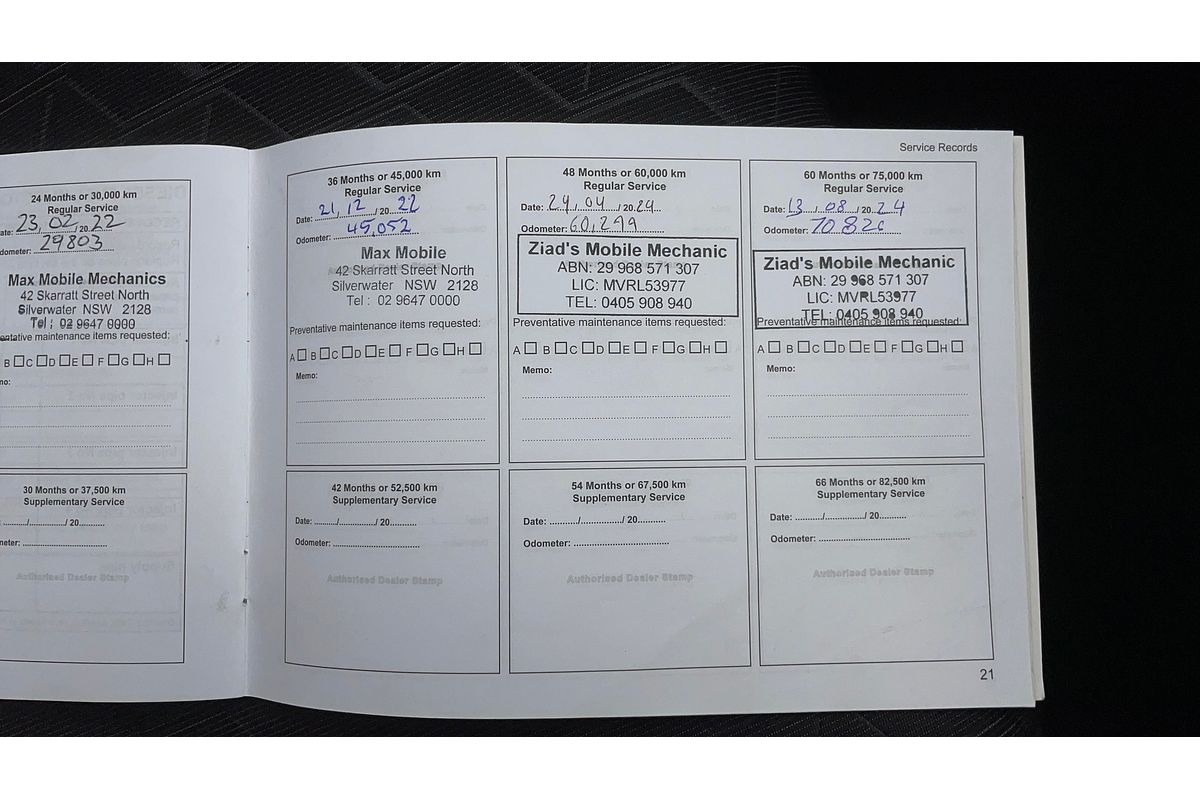 Service Records
24 Months or 30,000 km
Regular Service
ate: 23, 02, 20 22
dometer: 29803
Max Mobile Mechanics
42 Skarratt Street North
Silverwater NSW 2128
Tel : 02 9647 0000
Preventative maintenance items requested:
B C D E F G H
no:
36 Months or 45,000 km
Regular Service
Date: 21, 12 / 20 22
Odometer: 45,052
Max Mobile
42 Skarratt Street North
Silverwater NSW 2128
Tel : 02 9647 0000
Preventative maintenance items requested:
A B C D E F G H
Memo:
48 Months or 60,000 km
Regular Service
Date: 24, 04 / 20 24
Odometer: 60,299
Ziad's Mobile Mechanic
ABN: 29 968 571 307
LIC: MVRL53977
TEL: 0405 908 940
Preventative maintenance items requested:
A B C D E F G H
Memo:
60 Months or 75,000 km
Regular Service
Date: 13 / 08 / 20 24
Odometer: 70826
Ziad's Mobile Mechanic
ABN: 29 968 571 307
LIC: MVRL53977
TEL: 0405 908 940
Preventative maintenance items requested:
A B C D E F G H
Memo:
30 Months or 37,500 km
Supplementary Service
/ / 20
meter:
Authorised Dealer Stamp
42 Months or 52,500 km
Supplementary Service
Date: / / 20
Odometer:
Authorised Dealer Stamp
54 Months or 67,500 km
Supplementary Service
Date: / / 20
Odometer:
Authorised Dealer Stamp
66 Months or 82,500 km
Supplementary Service
Date: / / 20
Odometer:
Authorised Dealer Stamp
21